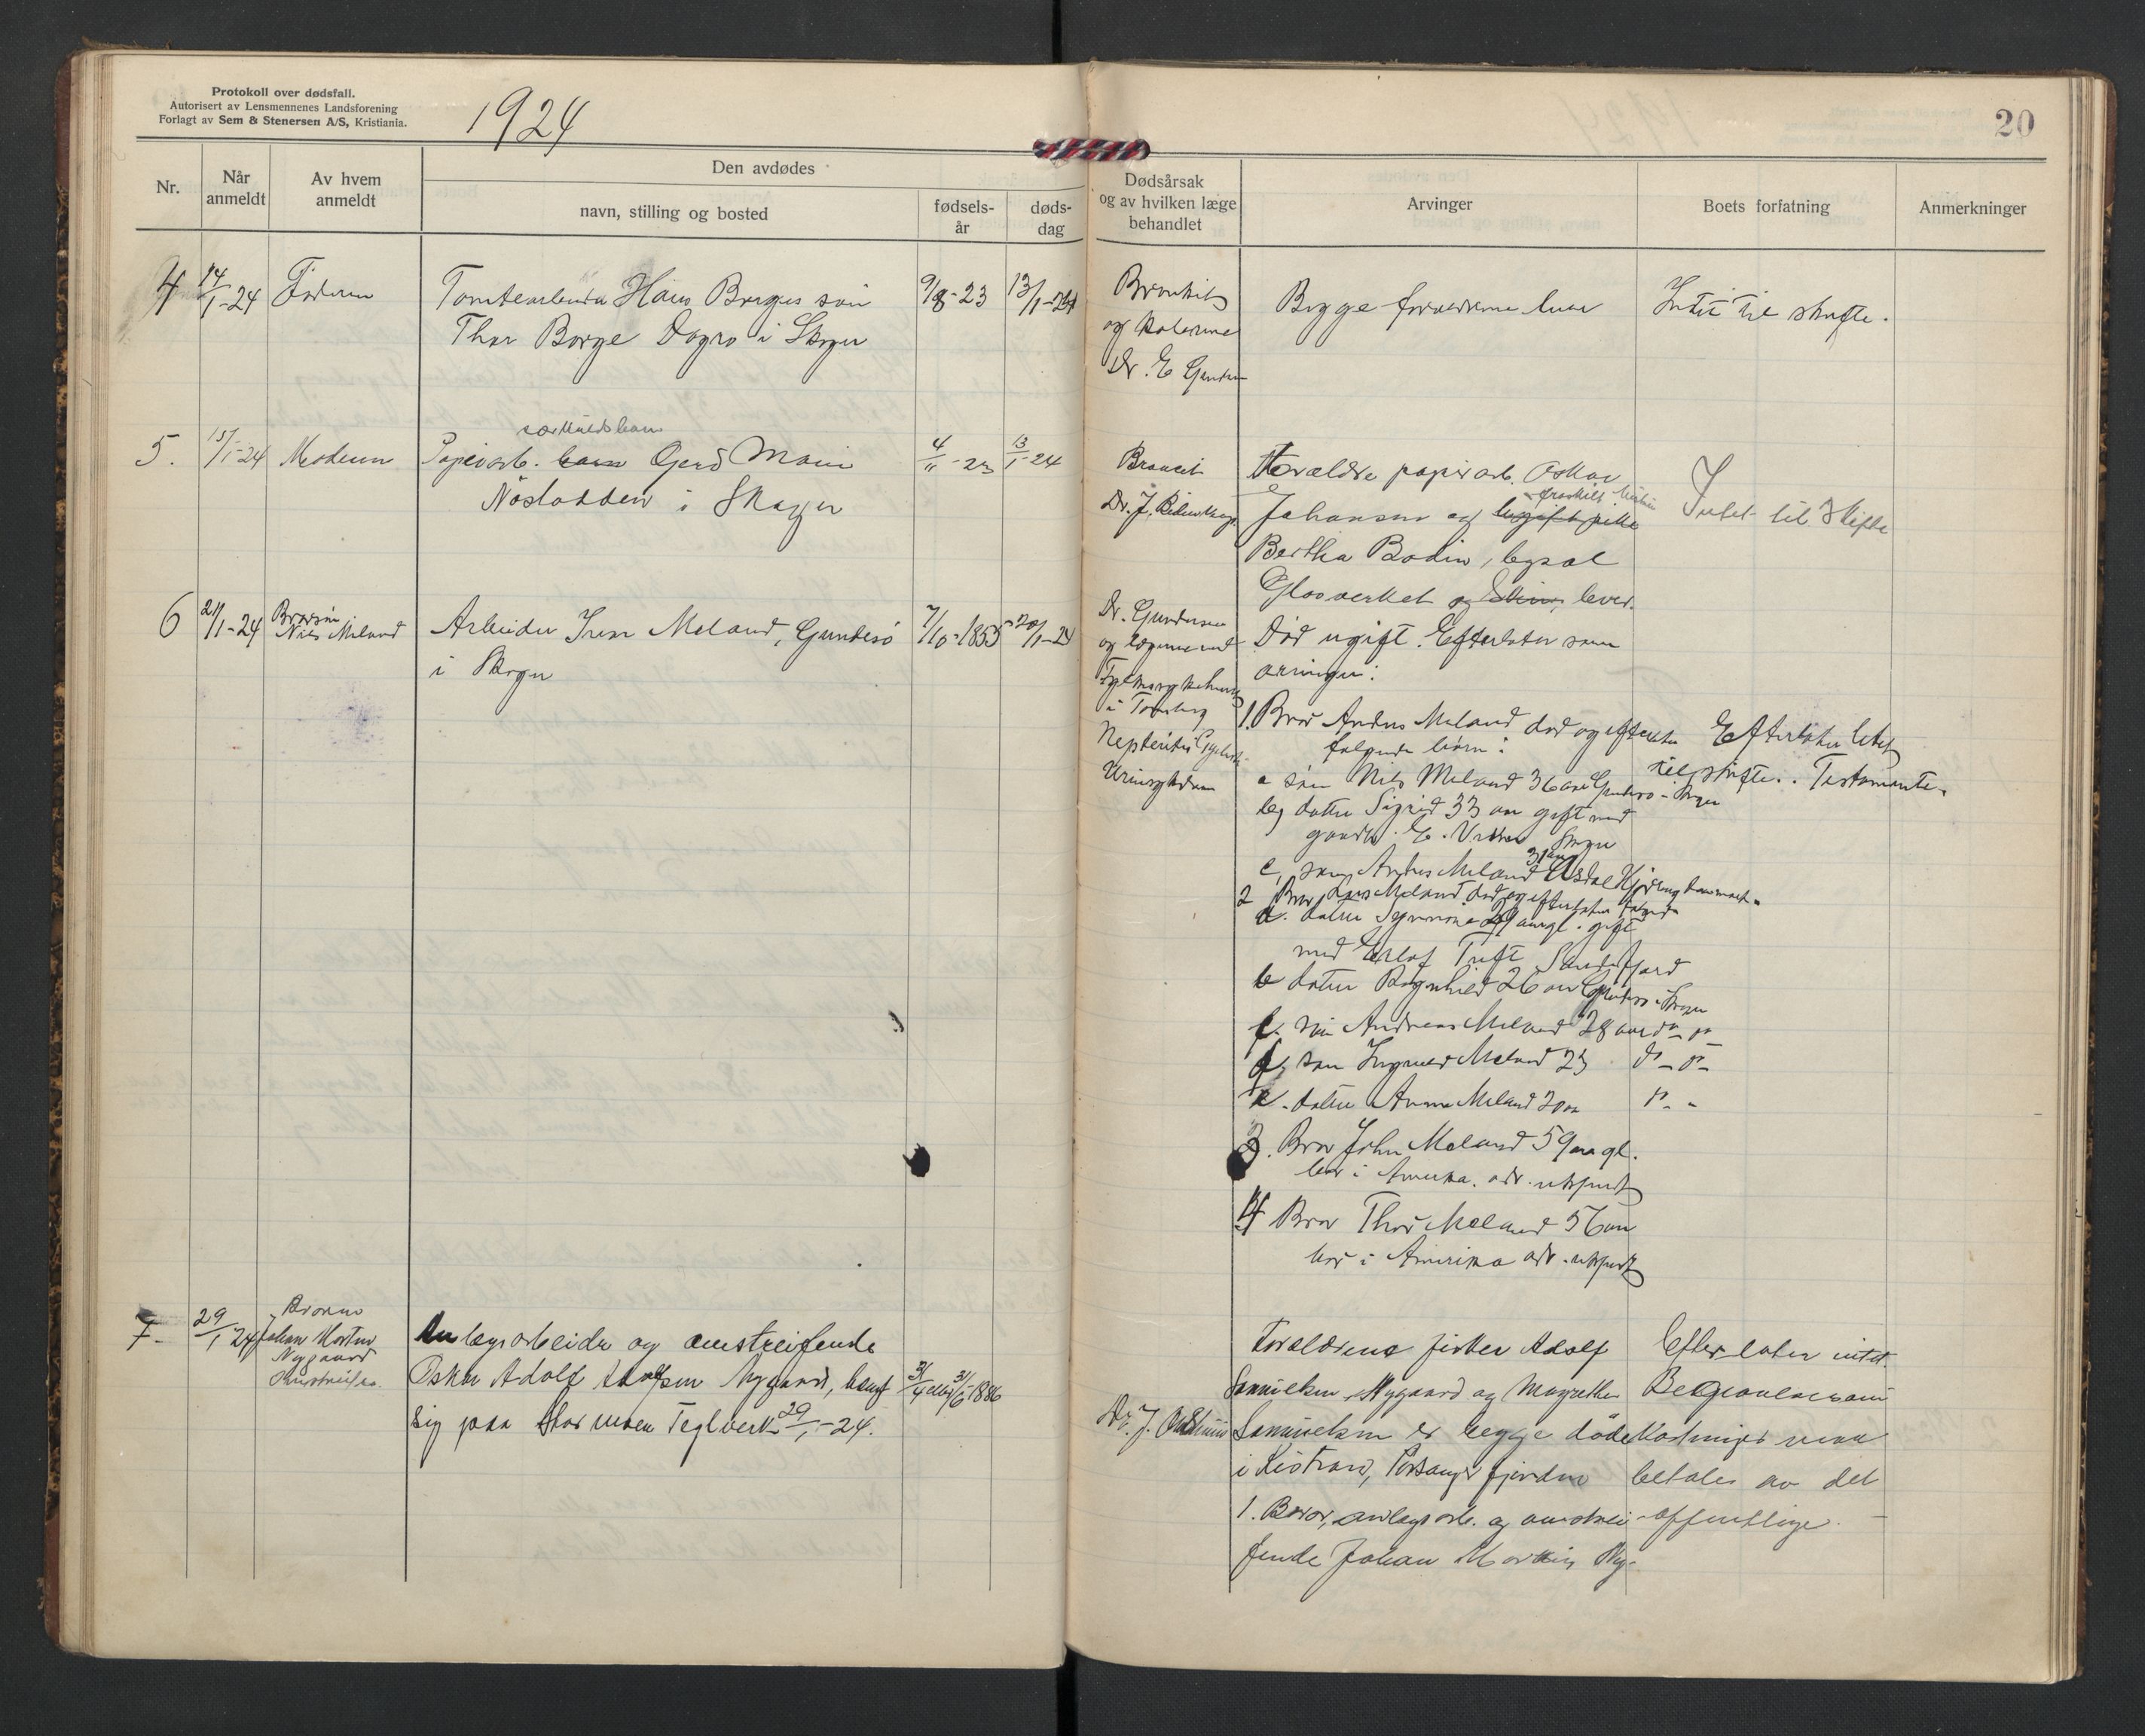 Protokoll over dødsfall.
Autorisert av Lensmennenes Landsforening
Forlagt av Sem & Stenersen A/S, Kristiania.
1924
20
Nr.
Når anmeldt
Av hvem anmeldt
Den avdødes
navn, stilling og bosted
fødsels-år
døds-dag
Dødsårsak og av hvilken læge behandlet
Arvinger
Boets forfatning
Anmerkninger
4
14/1-24
Faderen
Tomtearbeider Hans Borges søn
Thor Borge i Skoger
9/8-23
13/1-24
Bronkit
og
Dr. E
Begge forældrene lever
Intet til skifte.
5.
15/1-24
Moderen
særkuldsbarn
Papirarb. barn Gerd Marie
Nøstodden i Skoger
4/11-23
13/1-24
Dr. J.
Forældre papirarb. Oskar
fraskilt
Johansen og ugift pike
Bertha Bodin, bopæl
Glasverket og lever.
Intet til Skifte
6
21/1-24
Brorsøn
Nils Meland
Arbeider Iver Meland, Gundesø
i Skoger
7/10-1855
20/1-24
Dr. Gundersen
og lægerne ved
Fylkessykehuset
i Tønsberg
Urinsykdom
Død ugift. Efterlater som
arvinger:
1. Bror Anders Meland død og efterlater
følgende børn:
a søn Nils Meland 36 aar Gundesø - Skoger
b, datter Sigrid 33 aar gift med
gaardbr. E. Skoger
31 aar
c, søn Anders Meland
2 Bror Lars Meland død og efterlater følgende
a. datter 29 aar gl. gift
med Tuft Sandefjord
b datter Ragnhild 26 aar Gundesø i Skoger
c. søn Andreas Meland 28 aar do - do
d, søn Ingvald Meland 23 do - do
e. datter Anna Meland 20 aar do -
3. Bror John Meland 59 aar gl.
bor i Amerika. adr. ukjendt
4 Bror Thor Meland 56 aar
bor i Amerika adr. ukjendt
Efterlater litet
til skifte. Testamente.
7.
29/1 24
Broren
Johan Martin
Nygaard
Omstreifer.
Anlægsarbeider og omstreifende
Oskar Adolf Nygaard, hengt
sig paa Teglverk 29/1-24.
31/4 eller 31/6-1886
Dr. J.
Forældrene fisker Adolf
Samuelsen Nygaard og Magrethe
Samuelsen er begge døde
i Kistrand, Porsangerfjorden
1. Bror, anlægsarb. og omstrei-
fende Johan Martin Ny-
Efterlater intet
Begravelsesom-
kostninger maa
betales av det
offentlige.